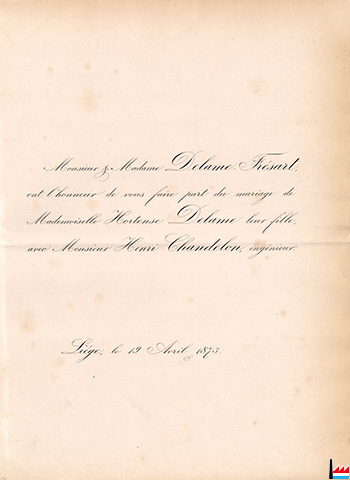 Monsieur & Madame Delame-Frésart,
ont l'honneur de vous faire part du mariage de
Mademoiselle Hortense Delame leur fille,
avec Monsieur Henri Chandelon, ingénieur.
Liége, le 19 Avril 1873.